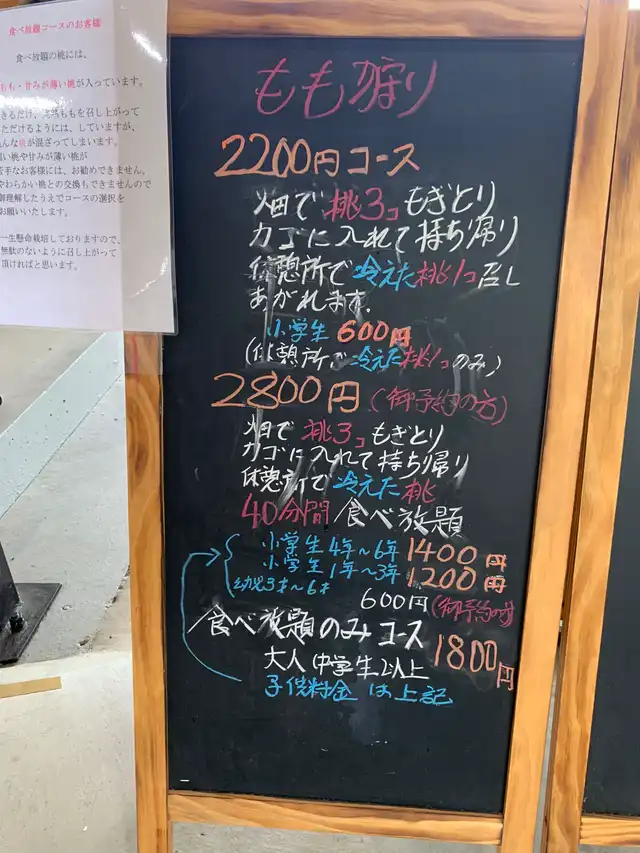 食べ放題コースのお客様
食べ放題の桃には、
もも・甘みが薄い桃が入っています。
きるだけ、完熟ももを召し上がって
ただけるようには、していますが、
んな桃が混ざってしまいます。
い桃や甘みが薄い桃が
苦手なお客様には、お勧めできません。
やわらかい桃との交換もできませんので
御理解したうえでコースの選択を
お願いいたします。
一生懸命栽培しておりますので、
無駄のないように召し上がって
頂ければと思います。
もも狩り
2200円コース
畑で桃3コもぎとり
カゴに入れて持ち帰り
休憩所で冷えた桃1コ召し
あがれます.
小学生 600円
(休憩所で冷えた桃1コのみ)
2800円(御予約の方)
畑で桃3コもぎとり
カゴに入れて持ち帰り
休憩所で冷えた桃
40分間食べ放題
小学生4年~6年 1400円
小学生1年~3年 1200円
幼児3才~6才
600円(御予約の方)
食べ放題のみコース
大人(中学生以上 1800円
子供料金は上記